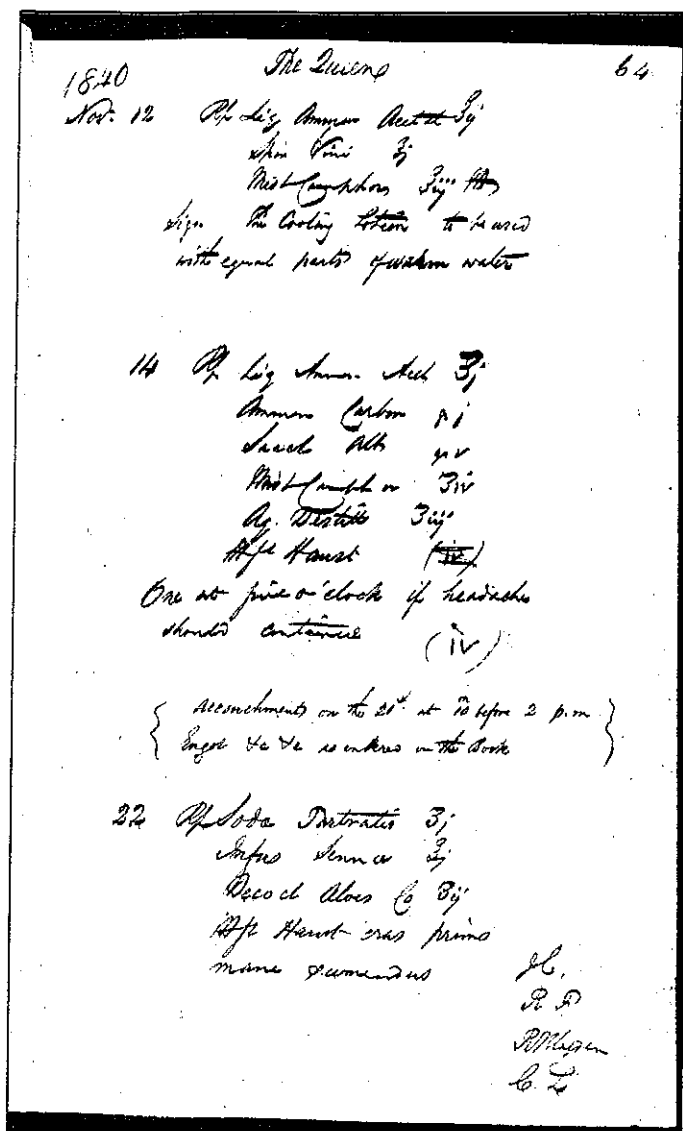 1840 The Queens 64
Nov. 12 Rx Liq Ammon Acetat ʒij
Spir Vini ʒj
Mist Camphor ʒiij
Sign The Cooling Lotion to be used
with equal parts of warm water
14 Rx Liq Ammon Acet ʒj
Ammon Carbon gr j
Sacch Alb gr v
Mist Camphor ʒiv
Aq. Distill ʒiij
Ft Haust (iv)
One at five o'clock if headache
should continue (iv)
Accouchments on the 21st at 10m before 2 p.m
Ergot &c &c is entered in the Book
22 Rx Soda Tartratis ʒj
Infus Senna ʒj
Decoct Aloes Co ʒij
Ft Haust cras primo
mane sumendus
JC.
R F
C. L